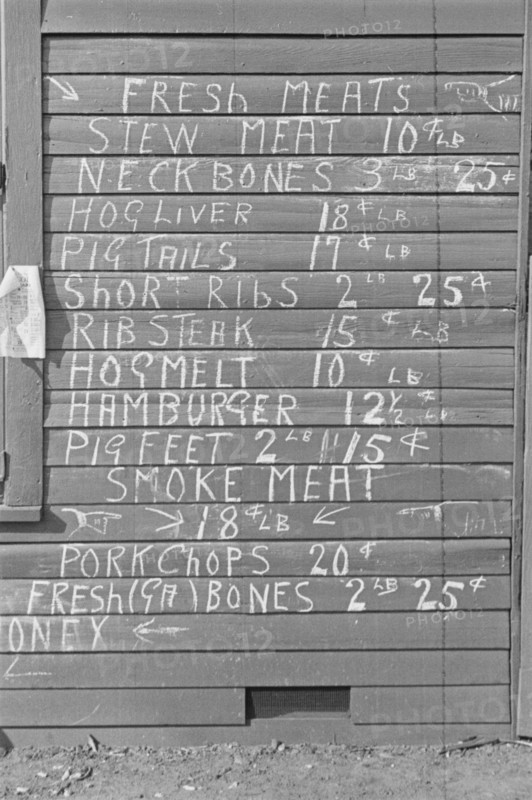 FRESh MEATS
STEW MEAT 10¢ LB
NECK BONES 3 LB 25¢
HOG LIVER 18¢ LB
PIG TAILS 17¢ LB
ShORT RIbS 2 LB 25¢
RIB STEAK 15¢ LB
HOG MELT 10¢ LB
HAMBURGER 12½¢ LB
PIG FEET 2 LB 15¢
SMOKE MEAT
18¢ LB
PORK ChOPS 20¢
FRESH (GA) BONES 2 LB 25¢
ONEX
PHOTO12